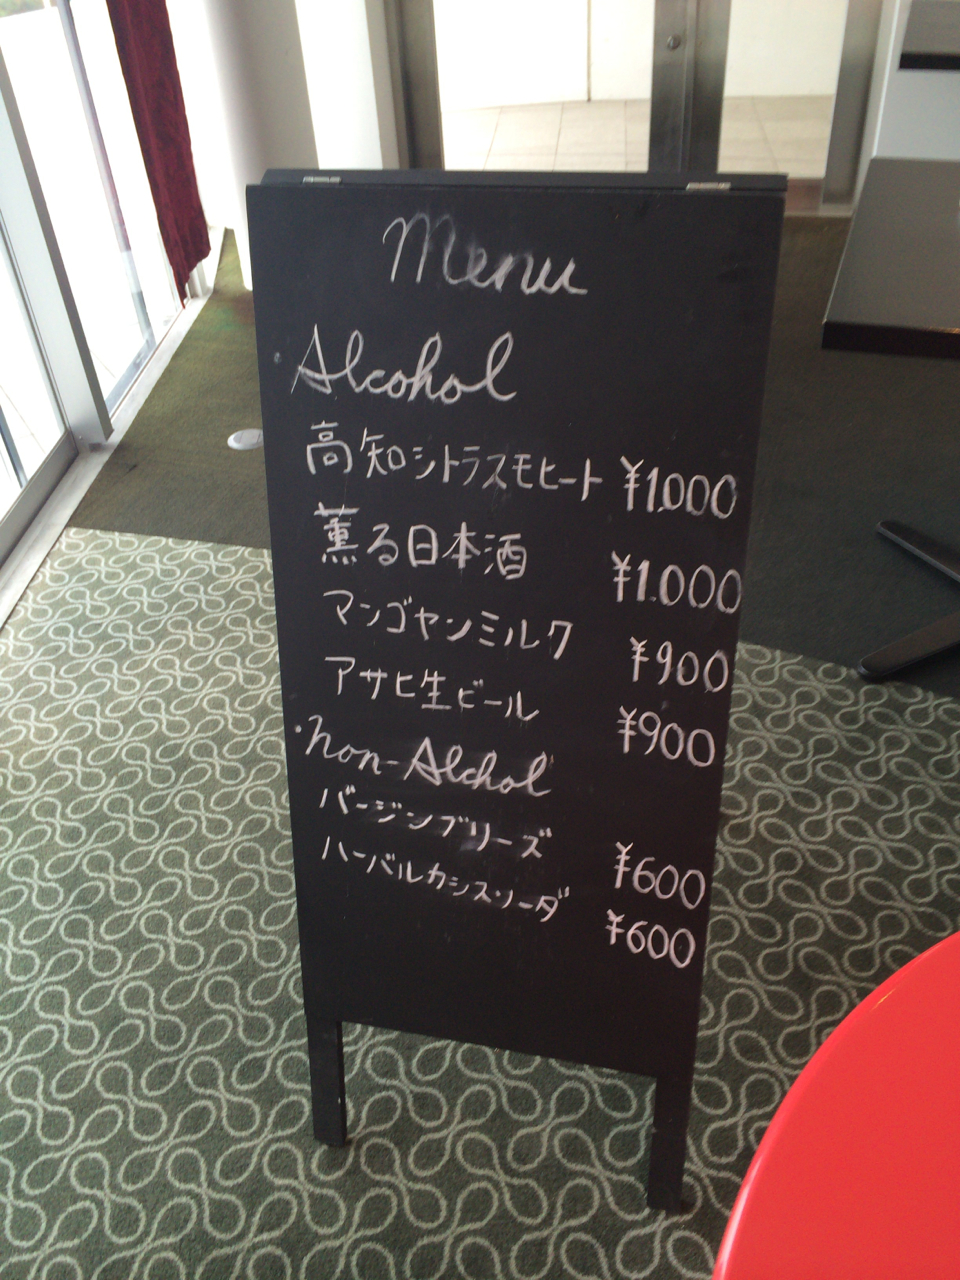 Menu
Alcohol
高知シトラスモヒート ¥1.000
薫る日本酒 ¥1.000
マンゴヤンミルク ¥900
アサヒ生ビール ¥900
·non-Alchol
バージンブリーズ ¥600
ハーバルカシスソーダ ¥600